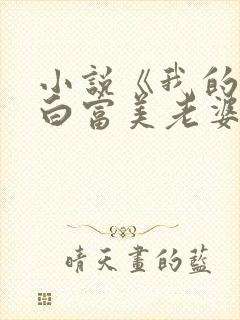 小説《我的
白富美老婆
晴天畫的藍